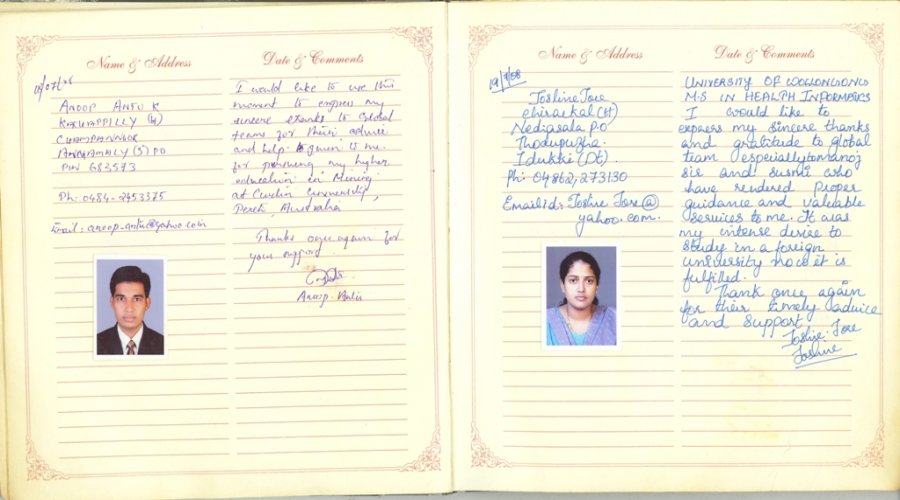 Name & Address
Date & Comments
ANOOP ANTU K
CHAMPANNOOR
ANGAMALY (S) PO
PIN 683573
Ph: 0484-2453375
Email: anoop-antu@yahoo.com
I would like to use this
moment to express my
sincere thanks to Global
team for their advice
and help given to me
for pursuing my higher
education in Mining
at Curtin University,
Perth, Australia
Thanks once again for
your support.
Anoop Antu
Name & Address
Date & Comments
19/7/08
Joshine Jose
chirackal (H)
Nediasala P.O
Thodupuzha
Idukki (Dt)
Ph: 04862,273130
Email id: Joshine Jose@
yahoo.com.
UNIVERSITY OF WOLLONGONG
M.S IN HEALTH INFORMATICS
I would like to
express my sincere thanks
and gratitude to global
team especially to manoj
sir and susmi who
have rendered proper
guidance and valuable
services to me. It was
my intense desire to
study in a foreign
university now it is
fulfilled.
Thank once again
for their timely advice
and support
Joshine Jose